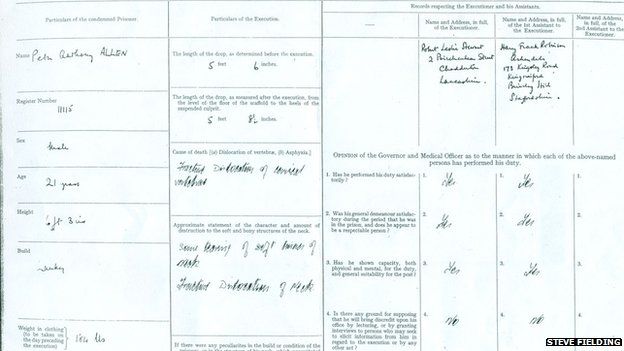 Particulars of the condemned Prisoner.
Particulars of the Execution.
Records respecting the Executioner and his Assistants.
Name and Address, in full, of the Executioner.
Name and Address, in full, of the 1st Assistant to the Executioner.
Name and Address, in full, of the 2nd Assistant to the Executioner.
Name Peter Anthony ALLEN
Register Number
11115
Sex
Male
Age
21 years
Height
6 ft 3 ins
Build
Weight in clothing (to be taken on the day preceding the execution)
184 lbs
The length of the drop, as determined before the execution.
5 feet 6 inches.
The length of the drop, as measured after the execution, from the level of the floor of the scaffold to the heels of the suspended culprit.
5 feet 8½ inches.
Cause of death [(a) Dislocation of vertebræ, (b) Asphyxia.]
Fracture Dislocation of cervical
vertebrae
Approximate statement of the character and amount of destruction to the soft and bony structures of the neck.
Some tearing of soft tissues of
neck
Fracture Dislocation of neck
If there were any peculiarities in the build or condition of the
Robert Leslie Stewart
2 Birchenlea Street
Chadderton
Lancashire.
Harry Frank Robinson
173 Kingsley Road
Kingswinford
Brierley Hill
Staffordshire.
OPINION of the Governor and Medical Officer as to the manner in which each of the above-named persons has performed his duty.
1. Has he performed his duty satisfactorily?
1. Yes
1. Yes
1.
2. Was his general demeanour satisfactory during the period that he was in the prison, and does he appear to be a respectable person?
2. Yes
2. Yes
2.
3. Has he shown capacity, both physical and mental, for the duty, and general suitability for the post?
3. Yes
3. Yes
3.
4. Is there any ground for supposing that he will bring discredit upon his office by lecturing, or by granting interviews to persons who may seek to elicit information from him in regard to the execution or by any other act?
4. No
4. No
4.
STEVE FIELDING